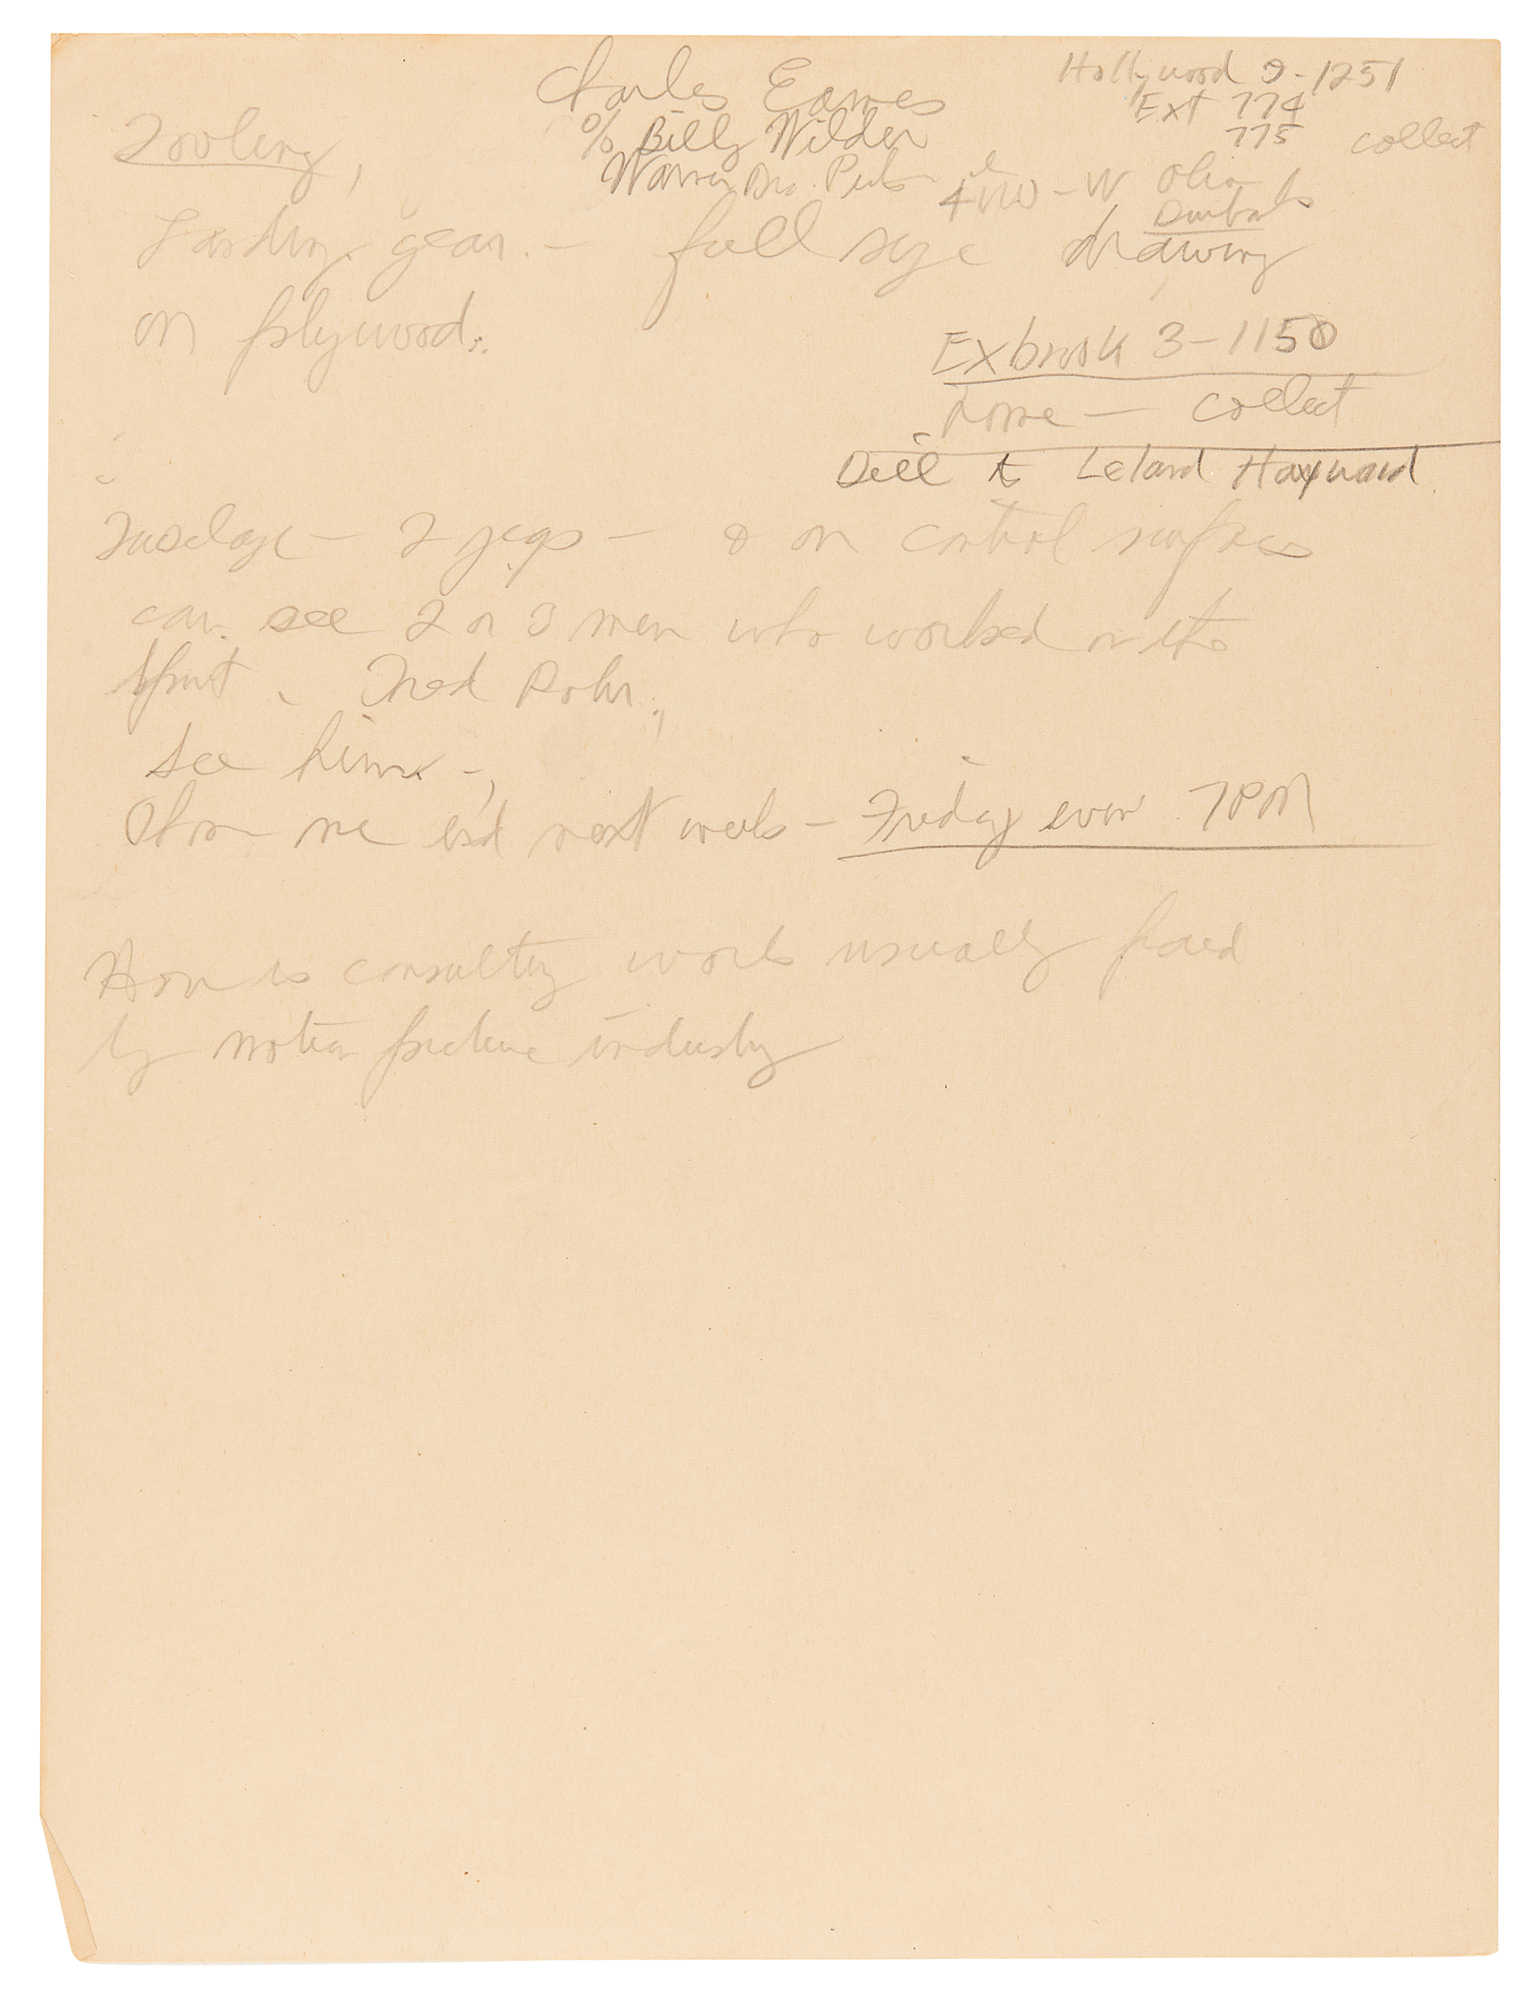 Charles Eames
c/o Billy Wilder
Warner Bro. Pict
Hollywood 9-1251
Ext 774
775 collect
4000 - W Olive
Burbank
Tooling,
Landing gear - full size drawing
on plywood.
Exbrook 3-1150
Home - collect
Bill to Leland Hayward
Fuselage - 2 jigs - & on control surfaces
can see 2 or 3 men who worked on the
Spirit. Fred Rohr.
See him -
Phone me end next week - Friday even 7PM
How is consulting work usually paid
by motion picture industry